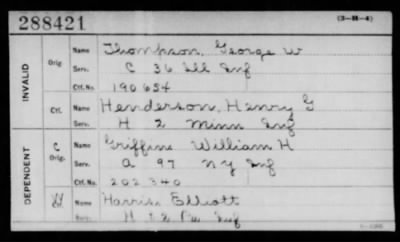 288421
(3-H-4)
INVALID
Orig
Name Thompson, George W
Serv. C 36 Ill Inf
Ctf. No. 190654
Ctf.
Name Henderson, Henry G
Serv. H 2 Minn Inf
DEPENDENT
C
Orig.
Name Griffin William H
Serv. A 97 N Y Inf
Ctf. No. 202340
Ctf.
Name Harris, Elliott
Serv. H 12 Inf